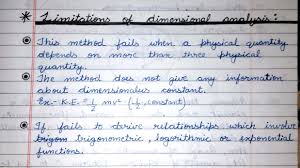 * Limitations of dimensional analysis :
This method fails when a physical quantity
depends on more than three physical
quantity.
The method does not give any information
about dimensionalus constant.
Ex- K.E = 1/2 mv² (1/2, constant)
If fails to derive relationships which involve
trigom trigonometric, logorithmic or exponential
functions.